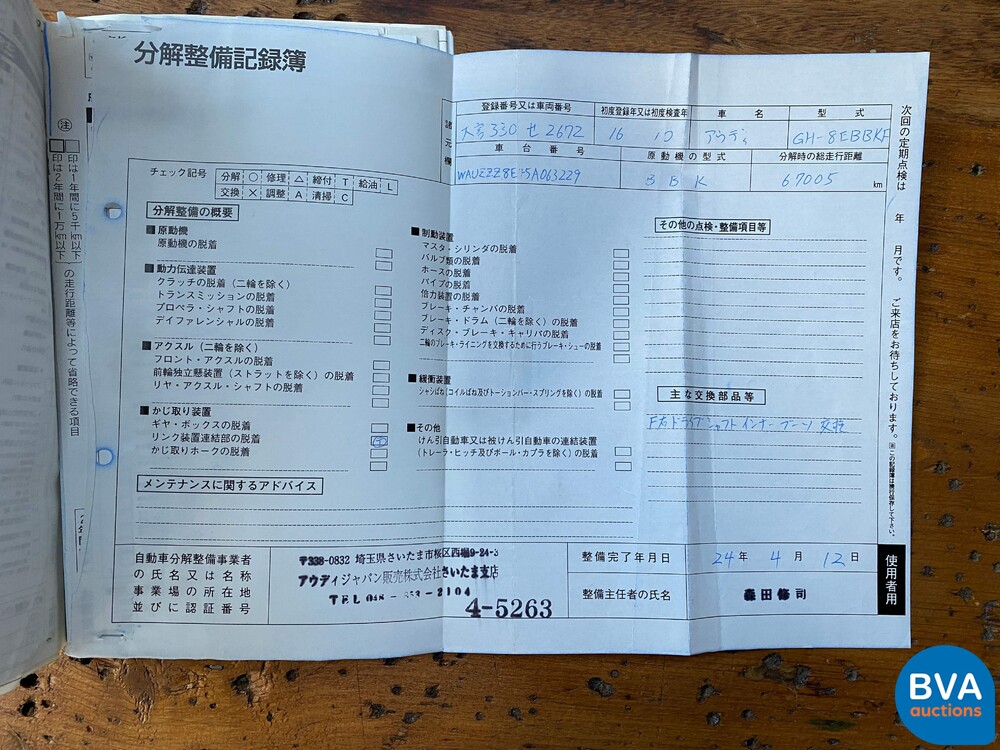 分解整備記録簿
㊟ □□印は1年間に5千km以下 □印は2年間に1万km以下 の走行距離等によって省略できる項目
チェック記号
分解 ○ 修理 △ 締付 T 給油 L
交換 × 調整 A 清掃 C
諸元欄
登録番号又は車両番号 初度登録年又は初度検査年 車名 型式
大宮 330 せ 2672 16 10 アウディ GH-8EBBKF
車台番号 原動機の型式 分解時の総走行距離
BBK 67005 km
分解整備の概要
■原動機
原動機の脱着
■動力伝達装置
クラッチの脱着（二輪を除く）
トランスミッションの脱着
プロペラ・シャフトの脱着
デイファレンシャルの脱着
■アクスル（二輪を除く）
フロント・アクスルの脱着
前輪独立懸装置（ストラットを除く）の脱着
リヤ・アクスル・シャフトの脱着
■かじ取り装置
ギヤ・ボックスの脱着
リンク装置連結部の脱着
かじ取りホークの脱着
■制動装置
マスタ・シリンダの脱着
バルブ類の脱着
ホースの脱着
パイプの脱着
倍力装置の脱着
ブレーキ・チャンバの脱着
ブレーキ・ドラム（二輪を除く）の脱着
ディスク・ブレーキ・キャリパの脱着
二輪のブレーキ・ライニングを交換するために行うブレーキ・シューの脱着
■緩衝装置
シャシばね(コイルばね及びトーションバー・スプリングを除く)の脱着
■その他
けん引自動車又は被けん引自動車の連結装置
(トレーラ・ヒッチ及びボール・カプラを除く）の脱着
その他の点検・整備項目等
主な交換部品等
F右ドライブシャフトインナーブーツ 交換
メンテナンスに関するアドバイス
自動車分解整備事業者
の氏名又は名称
事業場の所在地
並びに認証番号
〒338-0832 埼玉県さいたま市桜区西堀9-24-3
アウディジャパン販売株式会社さいたま支店
TEL 048-853-2104
4-5263
整備完了年月日 24年 4月 12日
整備主任者の氏名 森田修司
次回の定期点検は 年 月です。 ご来店をお待ちしております。
㊟この記録簿は携行保存して下さい。
使用者用
BVA
auctions